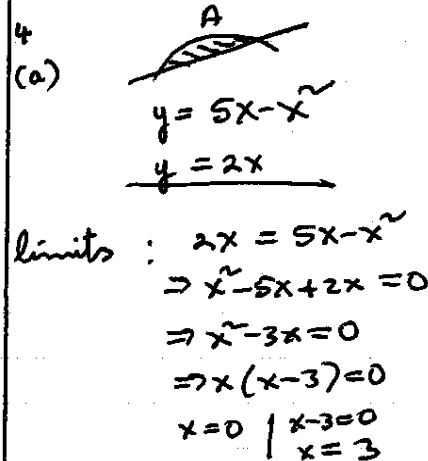 4
A
(a)
y = 5x-x²
y = 2x
limits : 2x = 5x-x²
⇒ x²-5x+2x = 0
⇒ x²-3x=0
⇒ x(x-3)=0
x=0 | x-3=0
x= 3